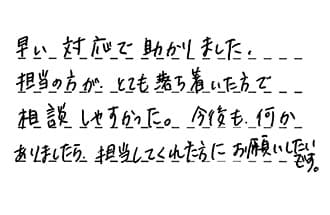 早い 対応で 助かりました.
担当の方が. とても 落ち着いた方で
相談 しやすかった。 今後も. 何か
ありましたら. 担当してくれた方に お願いしたいです。